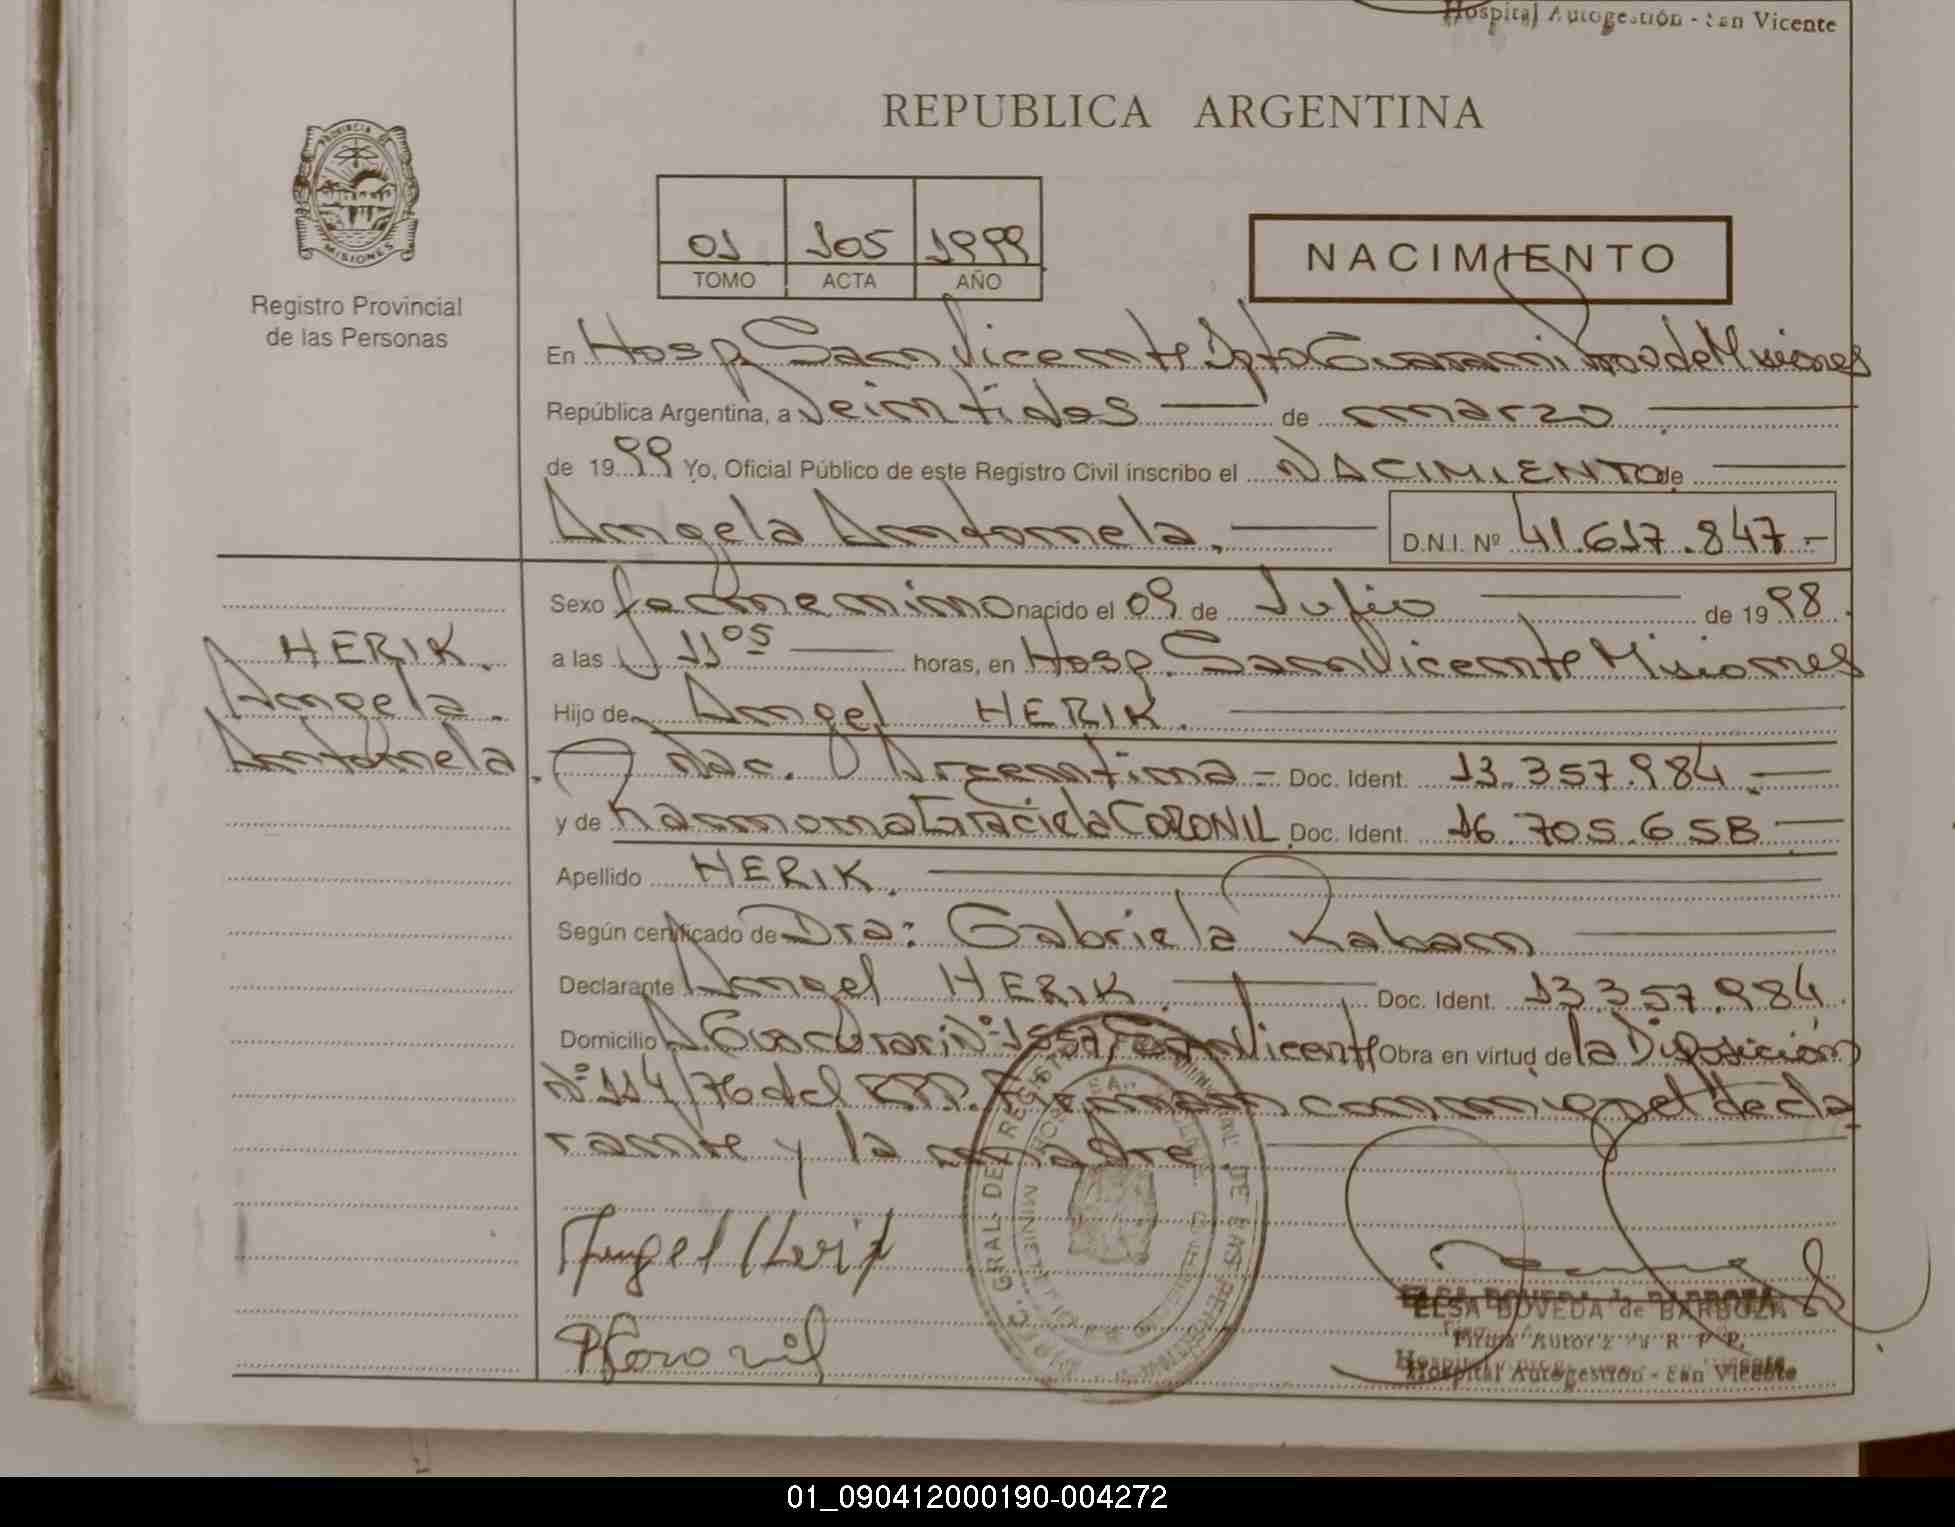 Hospital Autogestión - San Vicente
REPUBLICA ARGENTINA
PROVINCIA DE
MISIONES
Registro Provincial
de las Personas
01 105 1999
TOMO ACTA AÑO
NACIMIENTO
En Hosp. San Vicente Dpto Guarani Prov de Misiones
República Argentina, a Veintidos de marzo
de 1999 Yo, Oficial Público de este Registro Civil inscribo el NACIMIENTO de
Angela Antonela. D.N.I. Nº 41.617.847.-
Sexo femenino nacido el 09 de Julio de 1998.
a las 11 05 horas, en Hosp. San Vicente Misiones
HERIK.
Angela.
Antonela.
Hijo de Angel HERIK.
Nac. Argentina - Doc. Ident. 13.357.984.-
y de Ramona Graciela CORONIL Doc. Ident. 16.705.658
Apellido HERIK.
Según certificado de Dra: Gabriela Raban
Declarante Angel HERIK. Doc. Ident. 13.357.984.
Domicilio A Guacurari Nº 1557, San Vicente Obra en virtud de la Disposición
Nº 114/76 del RPP. Firman conmigo el decla
rante y la madre.
Angel Herik
RCoronil
ELSA BOVEDA de BARBOZA
Firma Autoriz R P P.
Hospital Autogestión - San Vicente
01_090412000190-004272